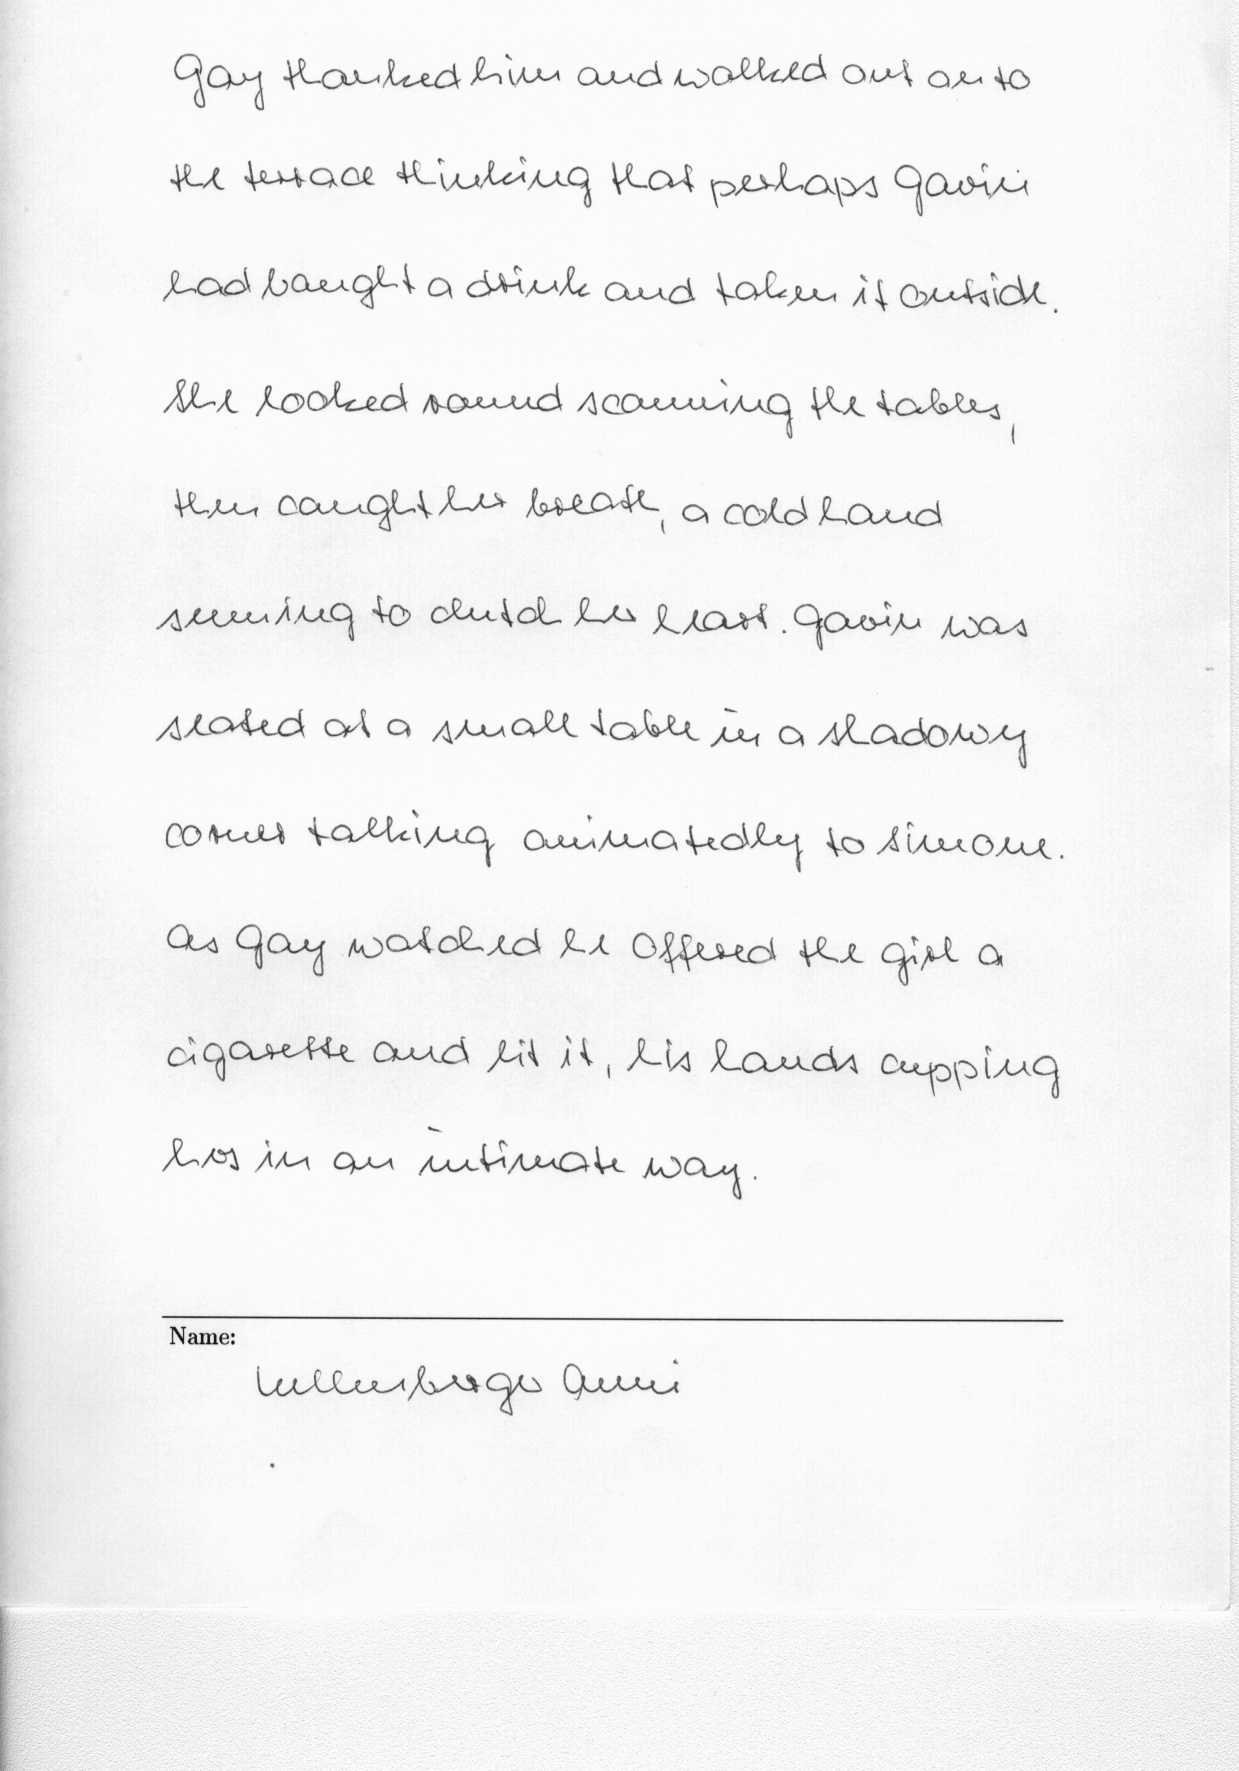 Gay thanked him and walked out on to
the terrace thinking that perhaps Gavin
had bought a drink and taken it outside.
She looked round scanning the tables,
then caught her breath, a cold hand
seeming to clutch her heart. Gavin was
seated at a small table in a shadowy
corner talking animatedly to Simone.
As Gay watched he offered the girl a
cigarette and lit it, his hands cupping
hers in an intimate way.
Name:
Anni